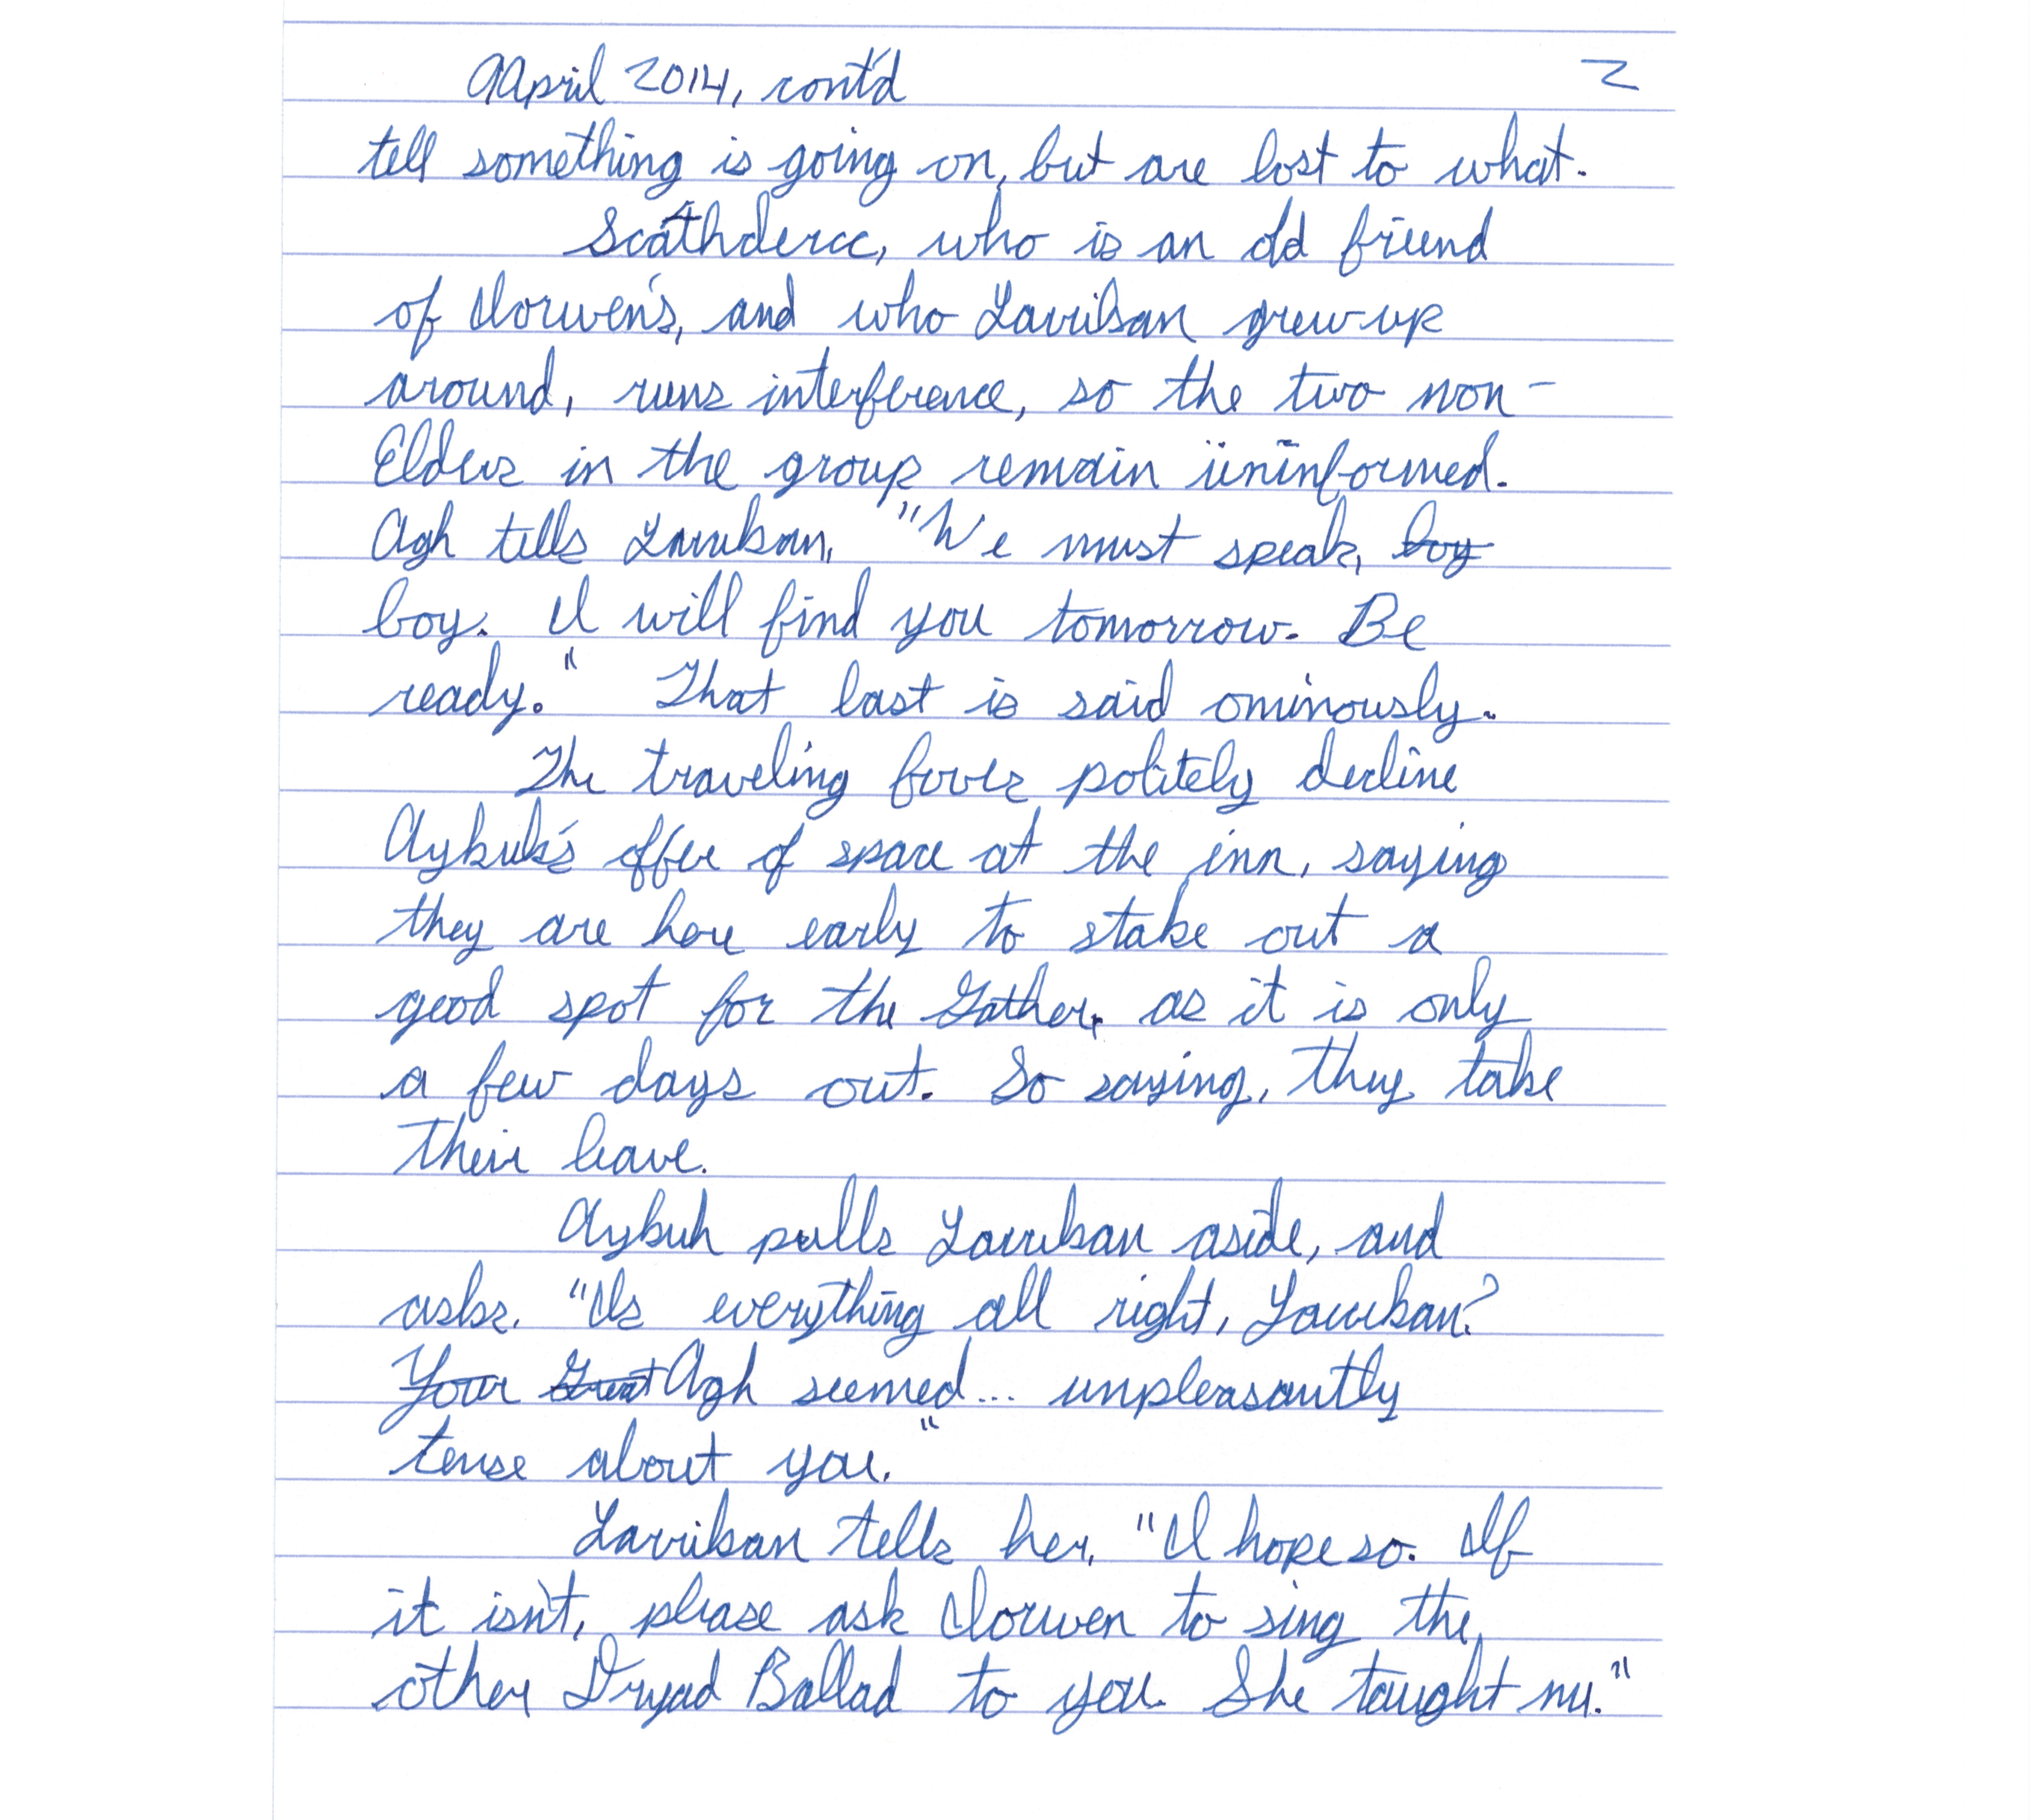 April 2014, cont'd 2
tell something is going on, but are lost to what.
Scáthdercc, who is an old friend
of Iorwen's, and who Lavrikan grew up
around, runs interference, so the two non-
Elders in the group remain uninformed.
Agh tells Lavrikan, "We must speak, boy
boy. I will find you tomorrow. Be
ready." That last is said ominously.
The traveling fours politely decline
Aykuh's offer of space at the inn, saying
they are here early to stake out a
good spot for the Gather, as it is only
a few days out. So saying, they take
their leave.
Aykuh pulls Lavrikan aside, and
asks, "Is everything all right, Lavrikan?
Your Great Agh seemed... unpleasantly
tense about you."
Lavrikan tells her, "I hope so. If
it isn't, please ask Iorwen to sing the
other Dryad Ballad to you. She taught me."